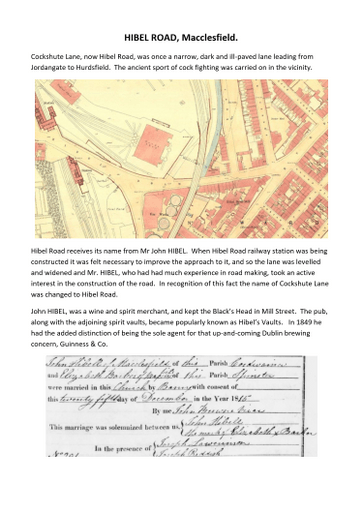 HIBEL ROAD, Macclesfield.
Cockshute Lane, now Hibel Road, was once a narrow, dark and ill-paved lane leading from
Jordangate to Hurdsfield. The ancient sport of cock fighting was carried on in the vicinity.
Hibel Road receives its name from Mr John HIBEL. When Hibel Road railway station was being
constructed it was felt necessary to improve the approach to it, and so the lane was levelled
and widened and Mr. HIBEL, who had had much experience in road making, took an active
interest in the construction of the road. In recognition of this fact the name of Cockshute Lane
was changed to Hibel Road.
John HIBEL, was a wine and spirit merchant, and kept the Black's Head in Mill Street. The pub,
along with the adjoining spirit vaults, became popularly known as Hibel's Vaults. In 1849 he
had the added distinction of being the sole agent for that up-and-coming Dublin brewing
concern, Guinness & Co.
John Hibell of Macclesfield of this Parish Cordwainer
and Elizabeth of this Parish Spinster
were married in this Church by Banns with consent of
this twenty fifth Day of December in the Year 1815
By me John
This marriage was solemnized between us John Hibell
Elizabeth Barber
In the presence of Joseph
Joseph